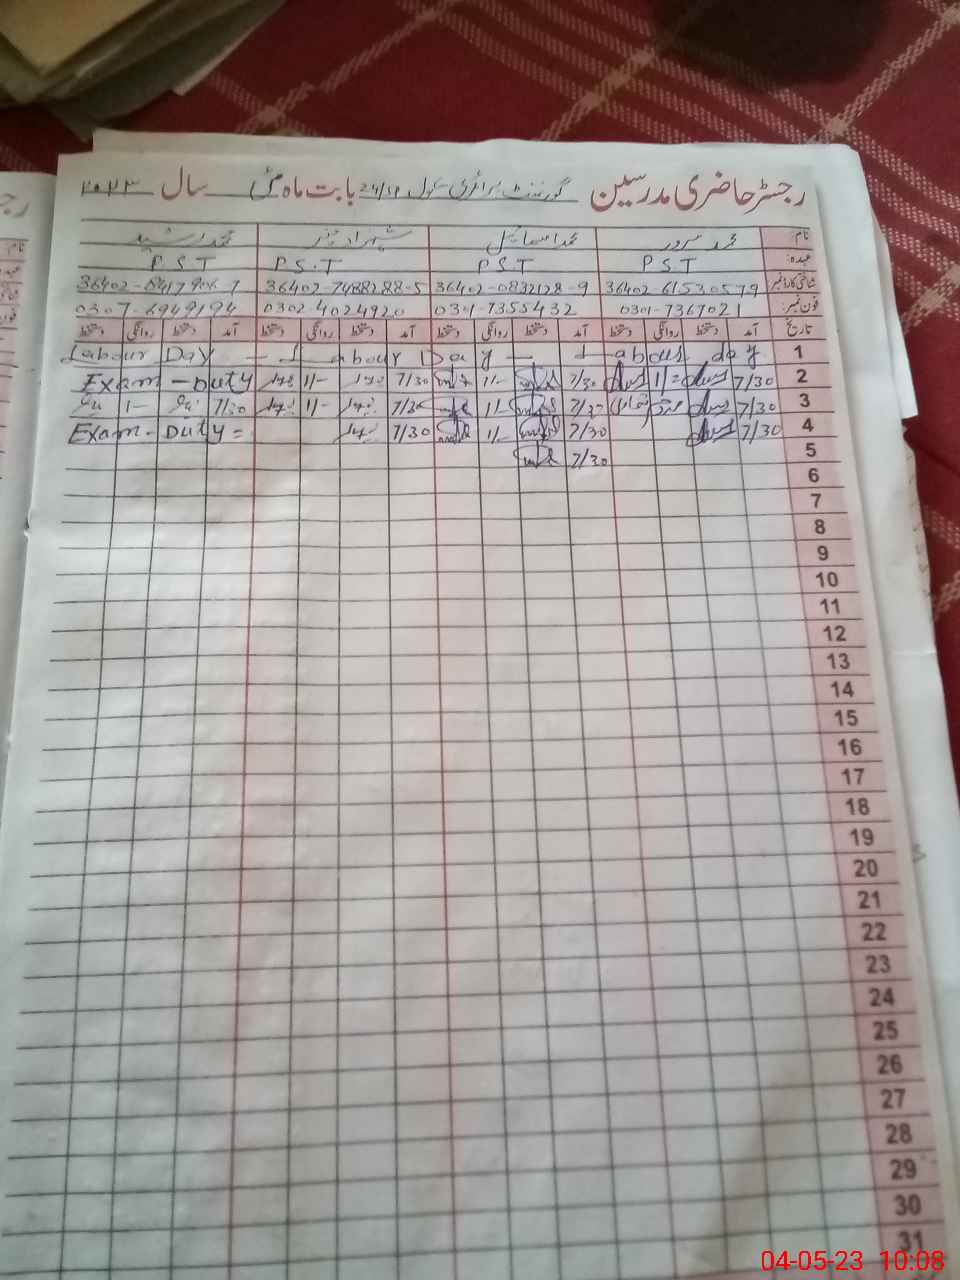 رجسٹر حاضری مدرسین گورنمنٹ پرائمری سکول بابت ماہ مئی سال ۲۰۲۳
نام: محمد سرور محمد اسماعیل محمد رشید
عہدہ: PST PST PS.T P.S.T
شناختی کارڈ نمبر 36402-0832128-9 36402-7488288-5
فون نمبر: 0301-7367021 0301-7355432 0302-4024920 0307-6949194
تاریخ آمد دستخط روانگی دستخط آمد دستخط روانگی دستخط آمد دستخط روانگی دستخط آمد دستخط روانگی دستخط
1 Labour Day — Labour Day — Labour day
2 7/30 7/30 1/- 7/30 1/- Exam - Duty
3 7/30 7/30 1/- 7/30 1/- 7/30 1-
4 7/30 7/30 1/- 7/30 Exam - Duty =
5 7/30
6
7
8
9
10
11
12
13
14
15
16
17
18
19
20
21
22
23
24
25
26
27
28
29
30
31
04-05-23 10:08